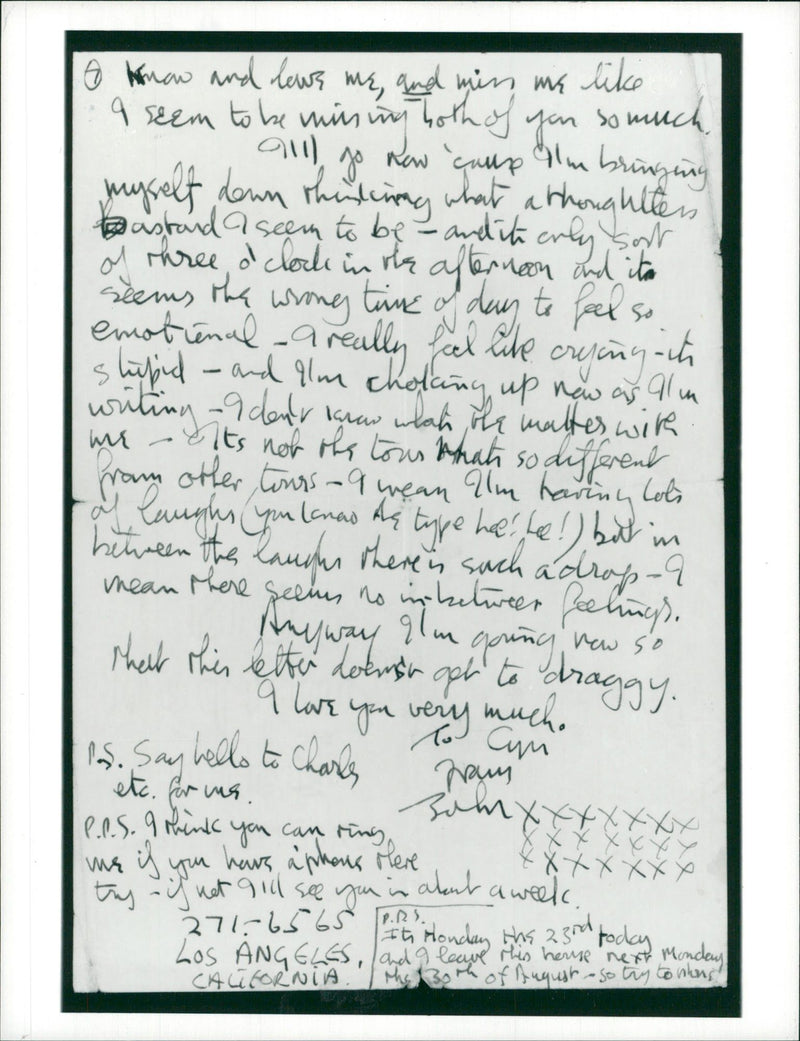 ⑦ Know and love me, and miss me like
I seem to be missing both of you so much.
I'll go now 'cause I'm bringing
myself down thinking what a thoughtless
bastard I seem to be – and it's only sort
of three o'clock in the afternoon and it
seems the wrong time of day to feel so
emotional – I really feel like crying – its
stupid – and I'm choking up now as I'm
writing – I don't know whats the matter with
me – Its not the tour thats so different
from other tours – I mean I'm having lots
of laughs (you know the type hee! hee!) but in
between the laughs there is such a drop – I
mean there seems no in-between feelings.
Anyway I'm going now so
that this letter doesn't get to draggy.
I love you very much.
To Cyn
from
John xxxxxxx
xxxxxxx
xxxxxxx
P.S. Say hello to Charles
etc. for me.
P.P.S. I think you can ring
me if you have a phone there
try – if not I'll see you in about a week.
271-6565
LOS ANGELES,
CALIFORNIA.
P.P.S.
Its Monday the 23rd today
and I leave this house next Monday
the 30th of August – so try to